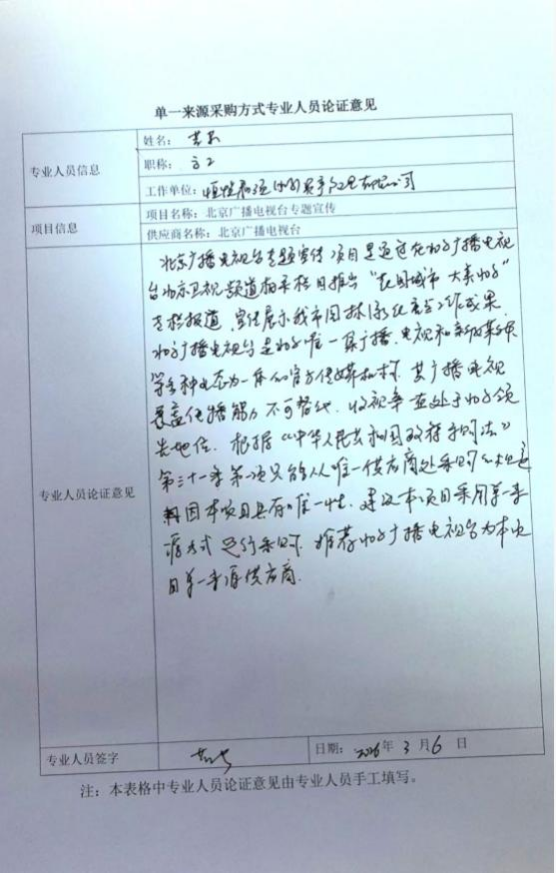 单一来源采购方式专业人员论证意见
专业人员信息
姓名：
职称：高工
工作单位：有限公司
项目信息
项目名称：北京广播电视台专题宣传
供应商名称：北京广播电视台
专业人员论证意见
北京广播电视台专题宣传项目是通过在北京广播电视
台北京卫视频道相关栏目推出“花园城市 大美北京”
专栏报道，宣传展示我市园林绿化重点工作成果。
北京广播电视台是北京唯一一家广播、电视和新媒体
等多种业态为一体的官方传媒机构。其广播电视
覆盖传播能力不可替代，收视率并处于北京领
先地位。根据《中华人民共和国政府采购法》
第三十一条第一项只能从唯一供应商处采购的规定
因本项目具有唯一性，建议本项目采用单一来
源方式进行采购。推荐北京广播电视台为本项
目单一来源供应商。
专业人员签字
日期：2026年3月6日
注：本表格中专业人员论证意见由专业人员手工填写。